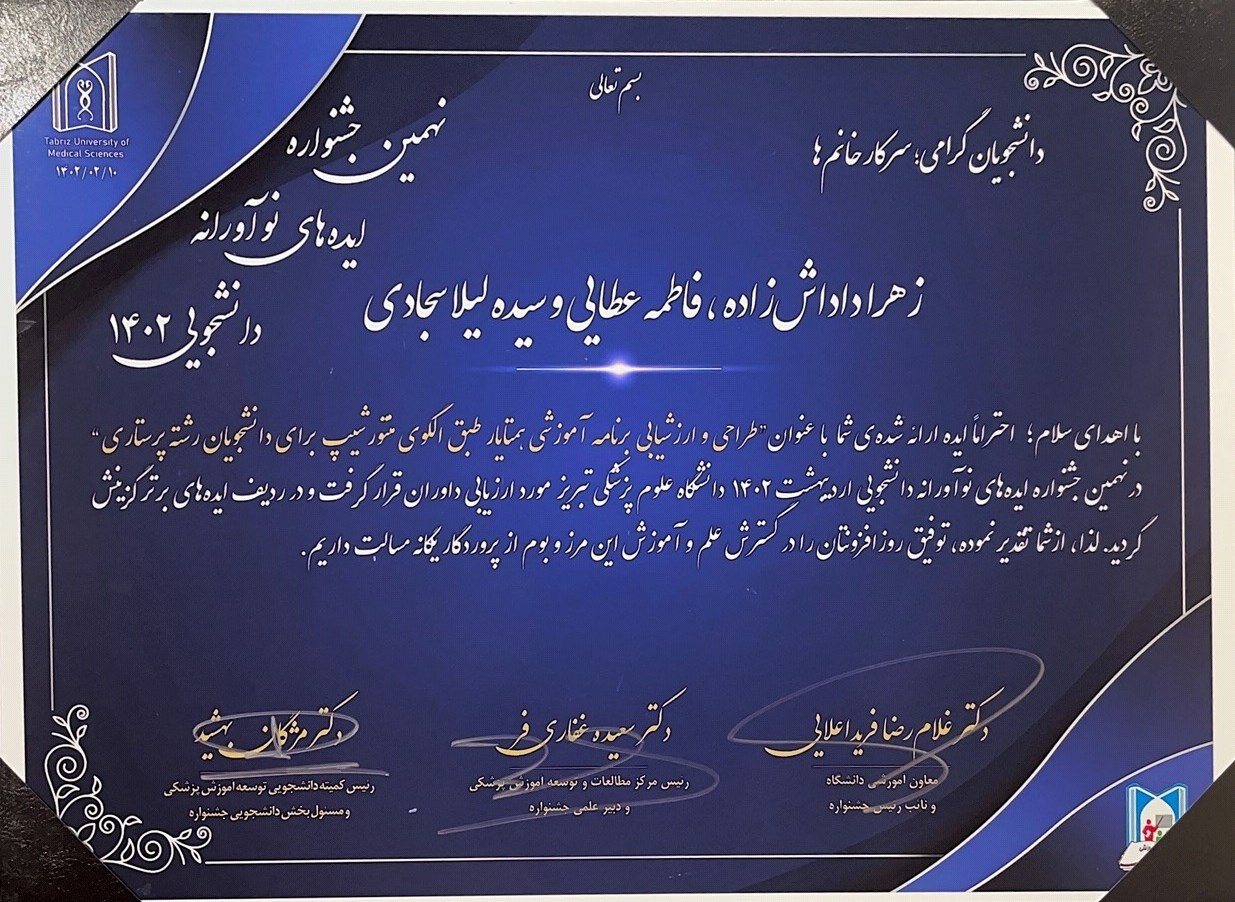 بسم تعالی
Tabriz University of
Medical Sciences
۱۴۰۲/۰۲/۱۰
نهمین جشنواره
ایده های نوآورانه
دانشجویی ۱۴۰۲
دانشجویان گرامی؛ سرکار خانم ها
زهرا داداش زاده، فاطمه عطایی و سیده لیلا سجادی
با اهدای سلام؛ احتراماً ایده ارائه شده‌ی شما با عنوان "طراحی و ارزشیابی برنامه آموزشی همتایار طبق الگوی منتورشیپ برای دانشجویان رشته پرستاری"
در نهمین جشنواره ایده‌های نوآورانه دانشجویی اردیبهشت ۱۴۰۲ دانشگاه علوم پزشکی تبریز مورد ارزیابی داوران قرار گرفت و در ردیف ایده‌های برتر گزینش
گردید. لذا، از شما تقدیر نموده، توفیق روزافزونتان را در گسترش علم و آموزش این مرز و بوم از پروردگار یگانه مسالت داریم.
دکتر غلام رضا فرید اعلایی
معاون آموزشی دانشگاه
و نائب رئیس جشنواره
دکتر سعیده غفاری فر
رئیس مرکز مطالعات و توسعه آموزش پزشکی
و دبیر علمی جشنواره
دکتر مژگان بهشید
رئیس کمیته دانشجویی توسعه آموزش پزشکی
و مسئول بخش دانشجویی جشنواره